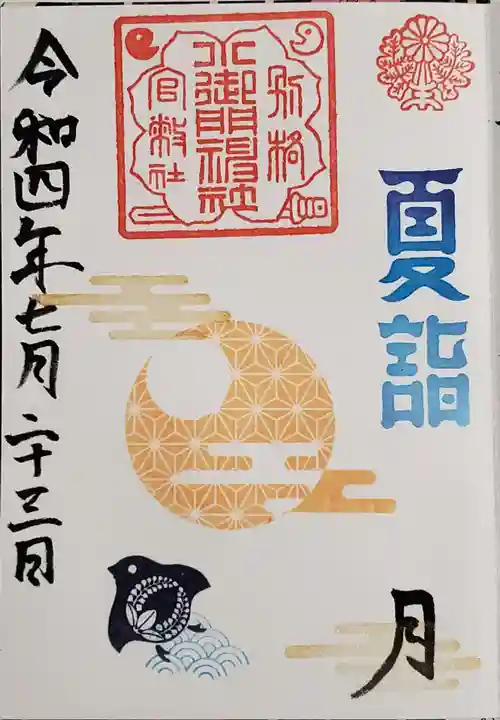 夏詣
月
別格
小御門神社
官幣社
令和四年七月二十三日